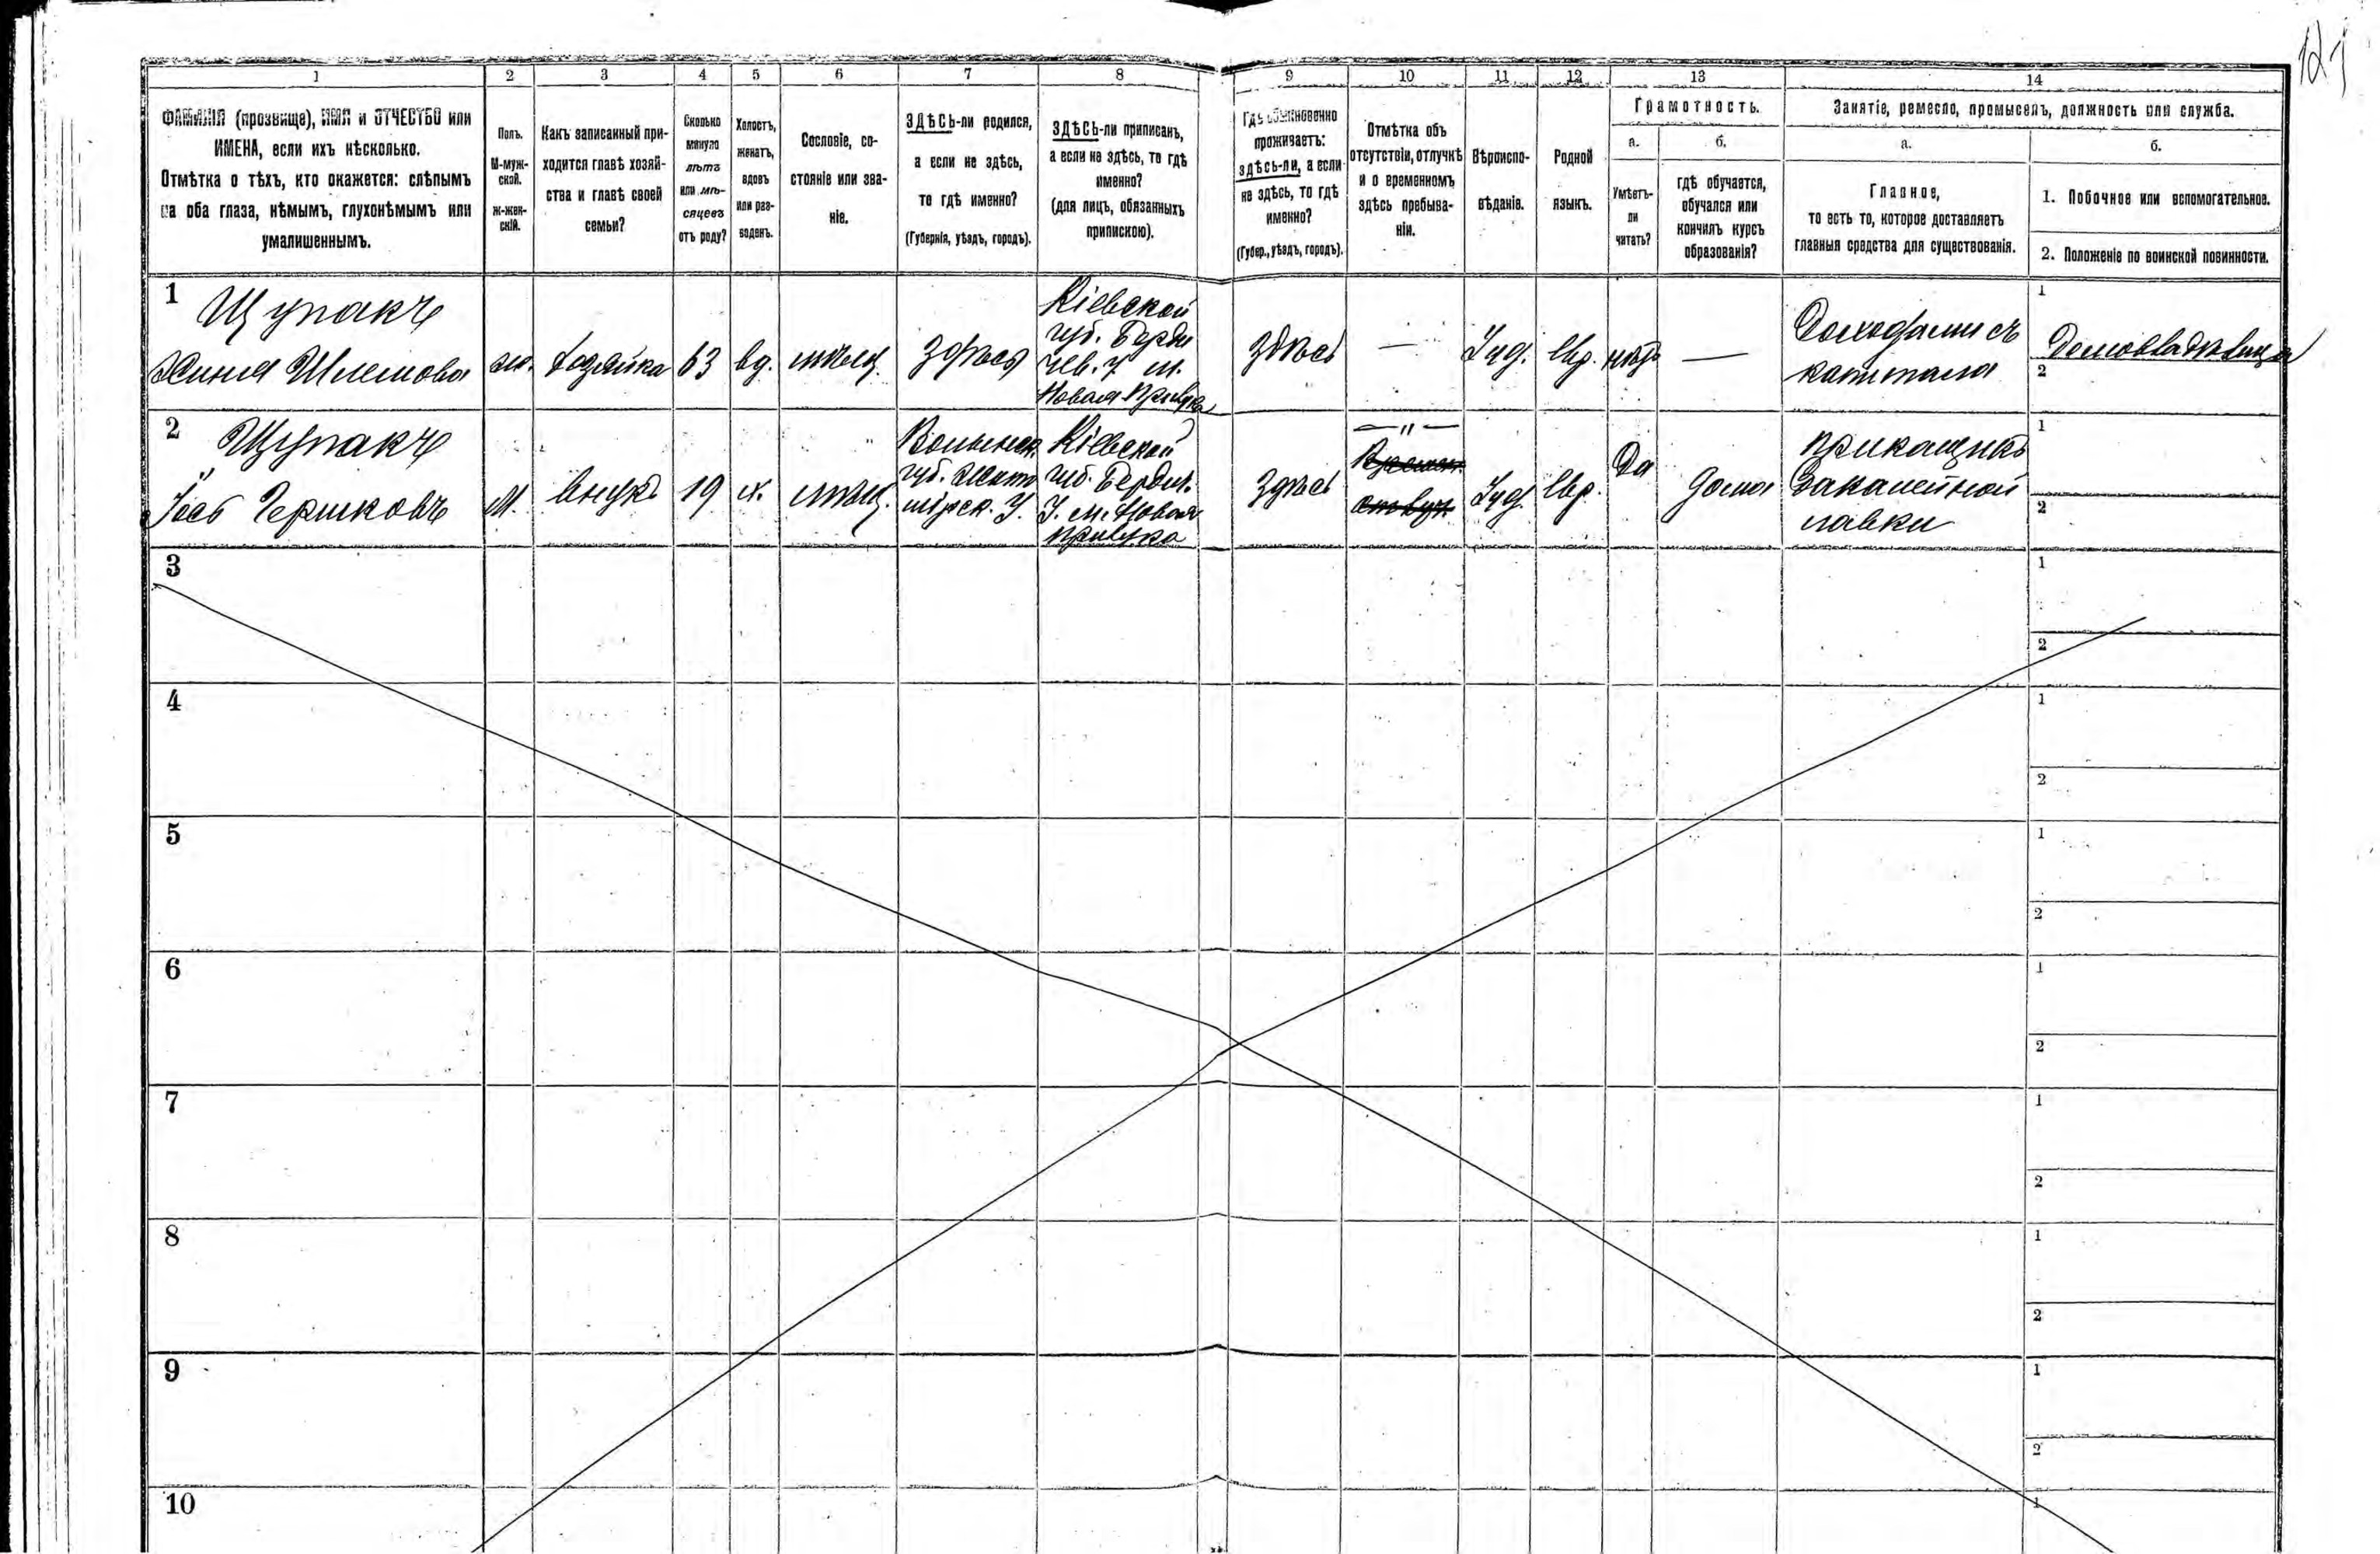 121
1 2 3 4 5 6 7 8 9 10 11 12 13 14
ФАМИЛІЯ (прозвище), ИМЯ и ОТЧЕСТВО или
ИМЕНА, если ихъ нѣсколько.
Отмѣтка о тѣхъ, кто окажется: слѣпымъ
на оба глаза, нѣмымъ, глухонѣмымъ или
умалишеннымъ.
Полъ.
М-муж-
ской.
Ж-жен-
скій.
Какъ записанный при-
ходится главѣ хозяй-
ства и главѣ своей
семьи?
Сколько
минуло
лѣтъ
или мѣ-
сяцевъ
отъ роду?
Холостъ,
женатъ,
вдовъ
или раз-
веденъ.
Сословіе, со-
стояніе или зва-
ніе.
ЗДѢСЬ-ли родился,
а если не здѣсь,
то гдѣ именно?
(Губернія, уѣздъ, городъ).
ЗДѢСЬ-ли приписанъ,
а если не здѣсь, то гдѣ
именно?
(для лицъ, обязанныхъ
припискою).
Гдѣ обыкновенно
проживаетъ:
здѣсь-ли, а если
не здѣсь, то гдѣ
именно?
(Губер., уѣздъ, городъ).
Отмѣтка объ
отсутствіи, отлучкѣ
и о временномъ
здѣсь пребыва-
ніи.
Вѣроиспо-
вѣданіе.
Родной
языкъ.
Грамотность.
а.
Умѣетъ-
ли
читать?
б.
гдѣ обучается,
обучался или
кончилъ курсъ
образованія?
Занятіе, ремесло, промыселъ, должность или служба.
а.
Главное,
то есть то, которое доставляетъ
главныя средства для существованія.
б.
1. Побочное или вспомогательное.
2. Положеніе по воинской повинности.
1
Щупакъ
Шлемова
ж.
хозяйка
63
вд.
мѣщ.
здѣсь
Кіевской
губ. Берди
чев. У. м.
Новая Прилука
здѣсь
—
Іуд.
евр.
нѣтъ
—
Доходами съ
капитала
1
Домовладѣлица
2
2
Щупакъ
Іось Гершковъ
М.
внукъ
19
х.
мѣщ.
Волынск.
губ. Жито
мірск. У.
Кіевской
губ. Бердич.
У. м. Новая
Прилука
здѣсь
— " —
Іуд.
евр.
Да
дома
Прикащикъ
Бакалейной
лавки
1
2
3
1
2
4
1
2
5
1
2
6
1
2
7
1
2
8
1
2
9
1
2
10
1